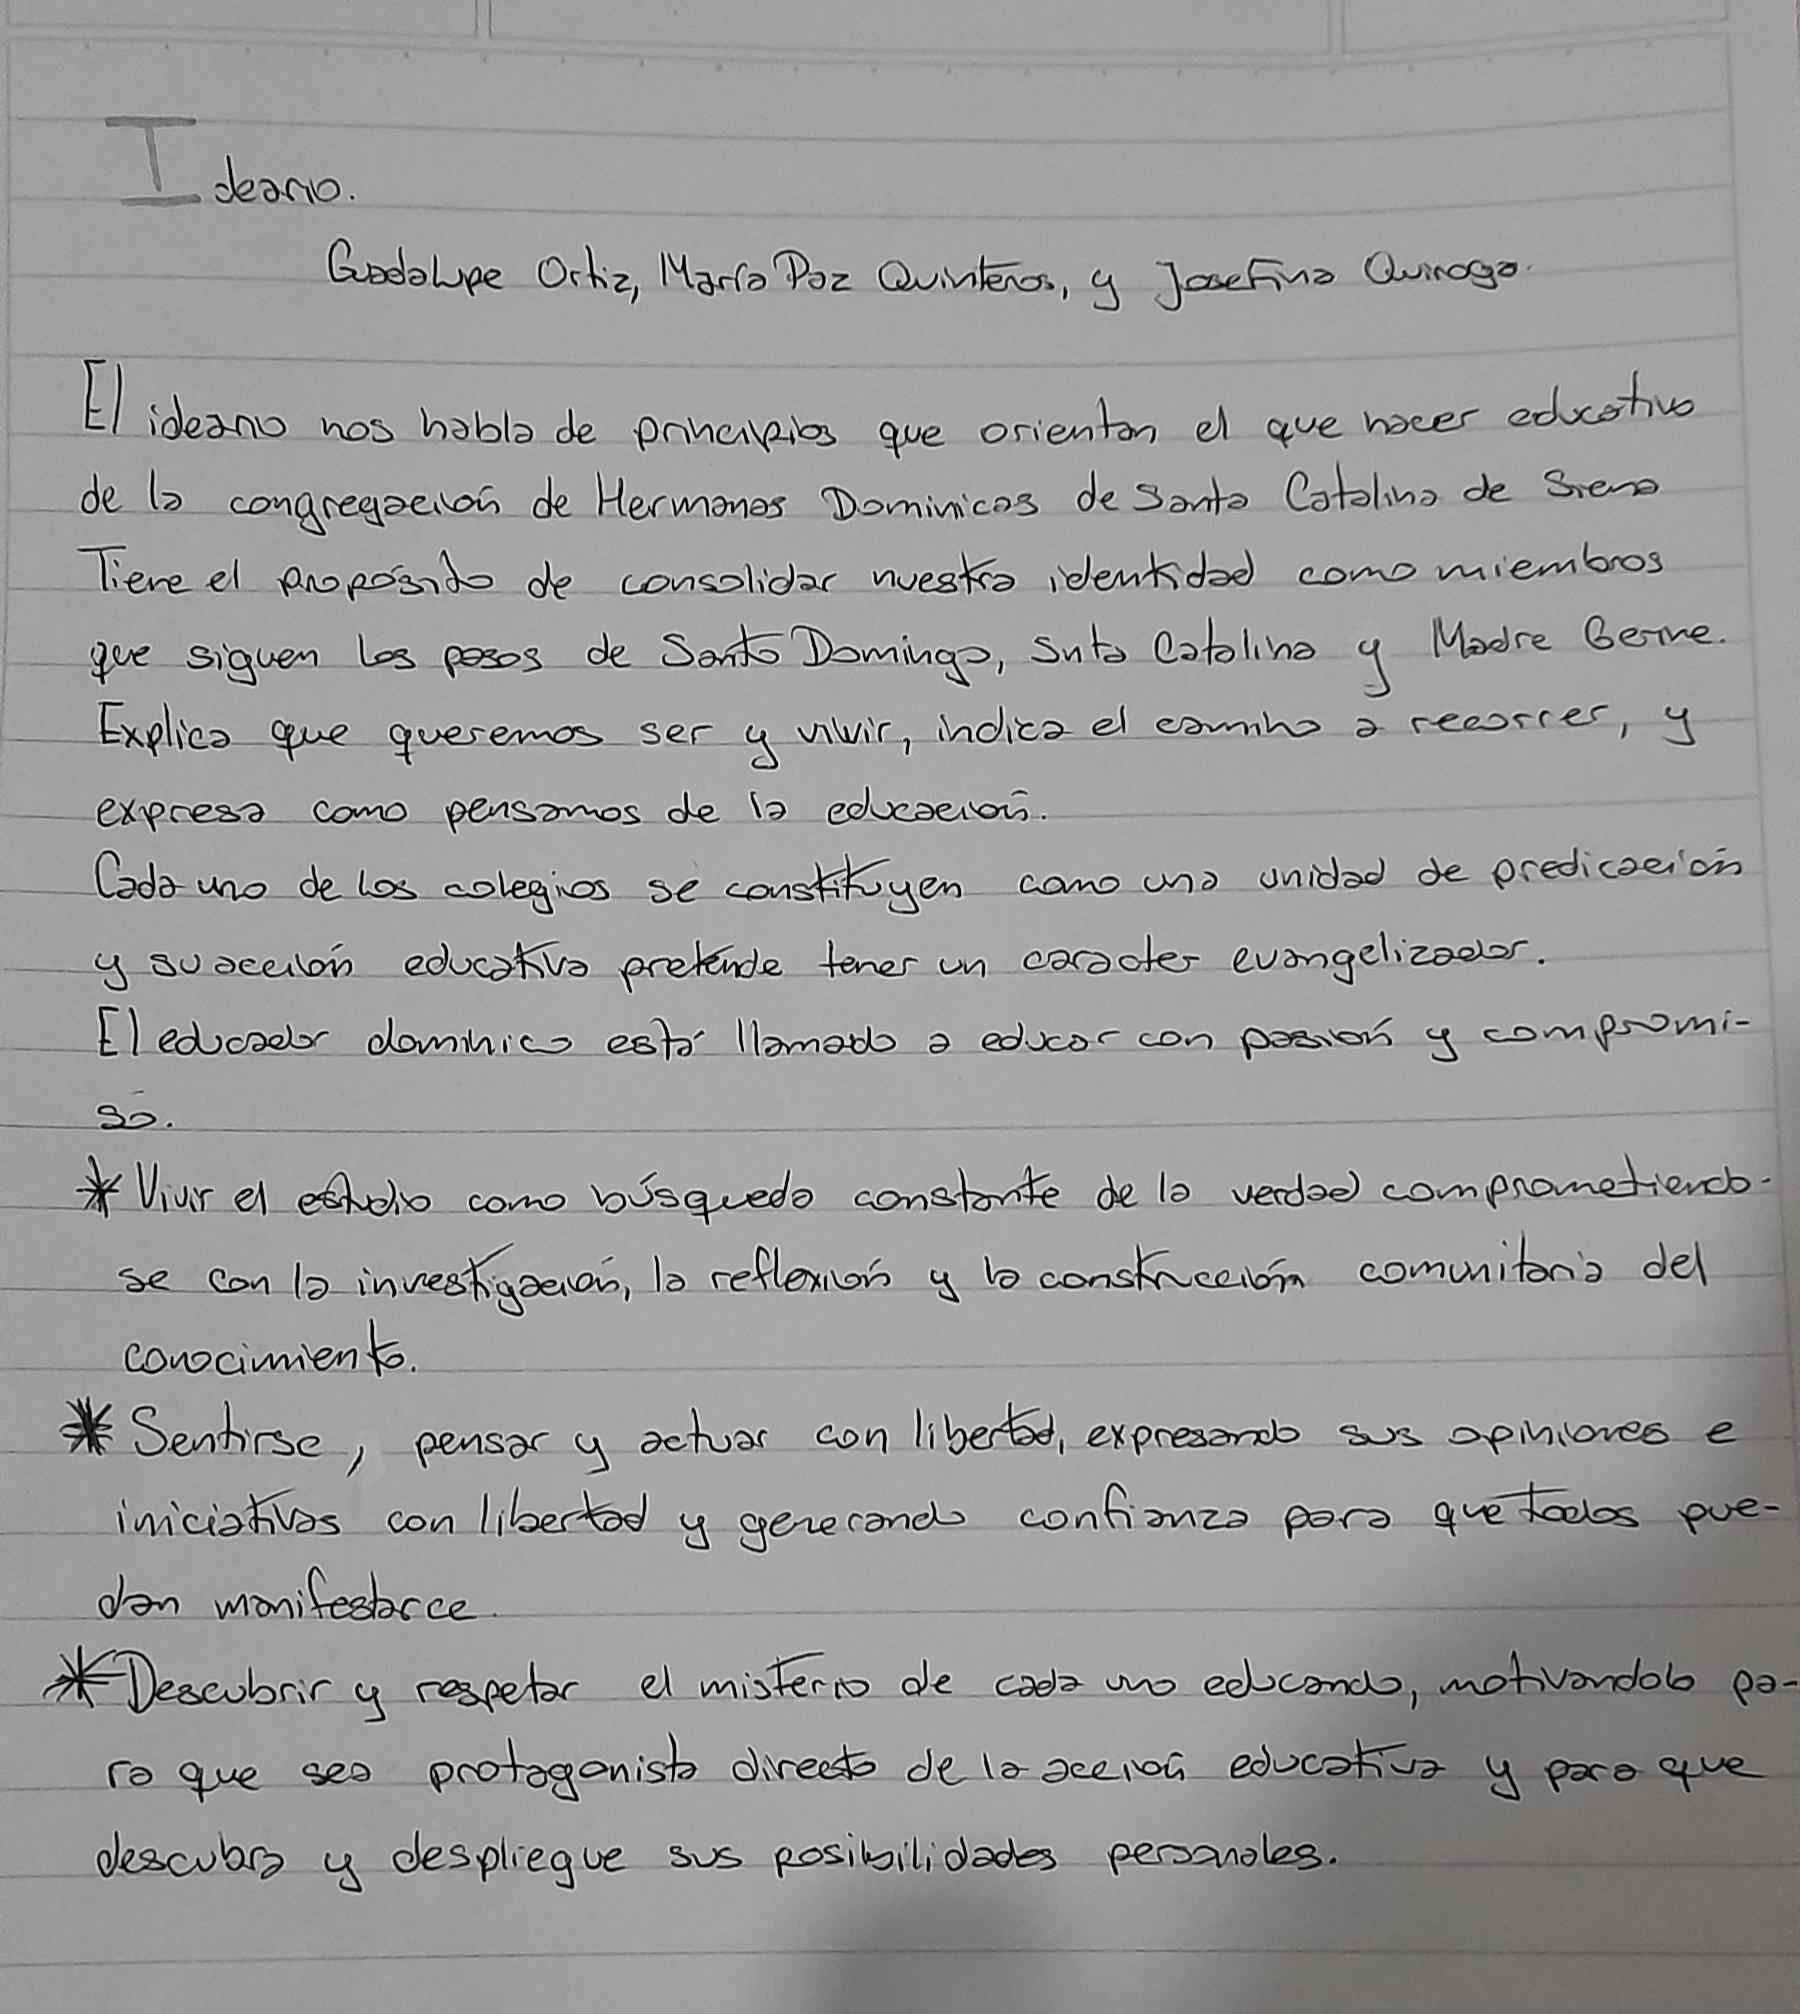 Ideario.
Guadalupe Ortiz, María Paz Quinteros, y Josefina Quiroga.
El ideario nos habla de principios que orientan el que hacer educativo
de la congregación de Hermanas Dominicas de Santa Catalina de Siena
Tiene el propósito de consolidar nuestra identidad como miembros
que siguen los pasos de Santo Domingo, Snta Catalina y Madre Gerine.
Explica que queremos ser y vivir, indica el camino a recorrer, y
expresa como pensamos de la educación.
Cada uno de los colegios se constituyen como una unidad de predicación
y su acción educativa pretende tener un caracter evangelizador.
El educador dominico está llamado a educar con pasión y compromi-
so.
* Vivir el estudio como búsqueda constante de la verdad comprometiendo-
se con la investigación, la reflexión y la construcción comunitaria del
conocimiento.
* Sentirse, pensar y actuar con libertad, expresando sus opiniones e
iniciativas con libertad y generando confianza para que todos pue-
dan manifestarce.
* Descubrir y respetar el misterio de cada uno educando, motivandolo pa-
ra que sea protagonista directo de la acción educativa y para que
descubra y despliegue sus posibilidades personales.